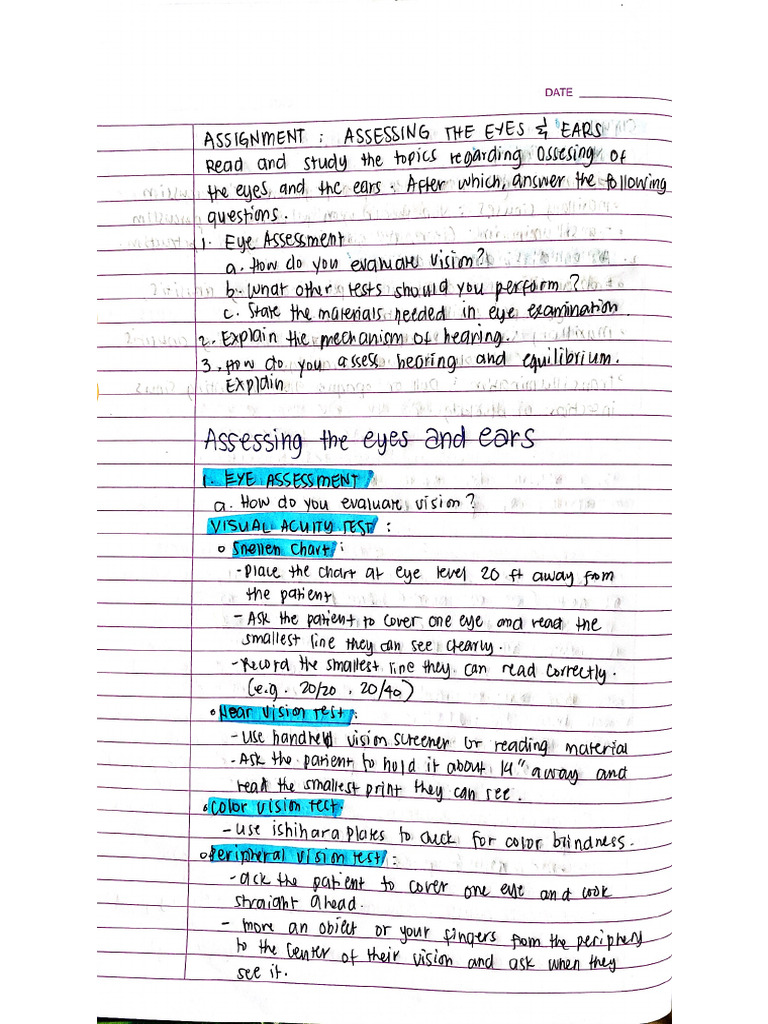 DATE
ASSIGNMENT : ASSESSING THE EYES & EARS
Read and study the topics regarding Ossesing of
the eyes, and the ears. After which, answer the following
questions.
1. Eye Assessment
a. How do you evaluate vision?
b. What other tests should you perform?
c. State the materials needed in eye examination.
2. Explain the mechanism of hearing.
3. How do you assess hearing and equilibrium.
Explain
Assessing the eyes and ears
1. EYE ASSESSMENT
a. How do you evaluate vision?
VISUAL ACUITY TEST :
o Snellen Chart :
- Place the chart at eye level 20 ft away from
the patient
- Ask the patient to cover one eye and read the
smallest line they can see clearly.
- Record the smallest line they can read correctly.
(e.g. 20/20, 20/40)
o Near Vision Test :
- Use handheld vision screener or reading material
- Ask the patient to hold it about 14" away and
read the smallest print they can see.
o Color Vision Test.
- Use ishihara plates to check for color blindness.
o Peripheral Vision test :
- ask the patient to cover one eye and look
straight ahead.
- move an object or your fingers from the periphery
to the center of their vision and ask when they
see it.